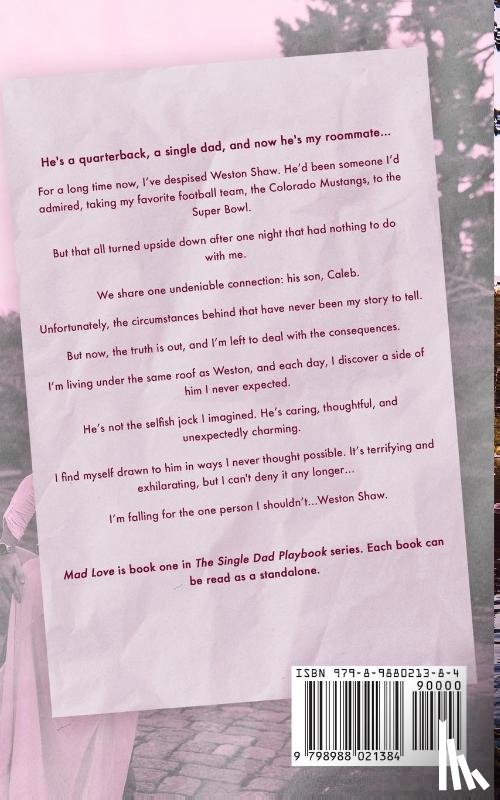 He's a quarterback, a single dad, and now he's my roommate...
For a long time now, I've despised Weston Shaw. He'd been someone I'd
admired, taking my favorite football team, the Colorado Mustangs, to the
Super Bowl.
But that all turned upside down after one night that had nothing to do
with me.
We share one undeniable connection: his son, Caleb.
Unfortunately, the circumstances behind that have never been my story to tell.
But now, the truth is out, and I'm left to deal with the consequences.
I'm living under the same roof as Weston, and each day, I discover a side of
him I never expected.
He's not the selfish jock I imagined. He's caring, thoughtful, and
unexpectedly charming.
I find myself drawn to him in ways I never thought possible. It's terrifying and
exhilarating, but I can't deny it any longer...
I'm falling for the one person I shouldn't...Weston Shaw.
Mad Love is book one in The Single Dad Playbook series. Each book can
be read as a standalone.
ISBN 979-8-9880213-8-4
90000
9 798988 021384